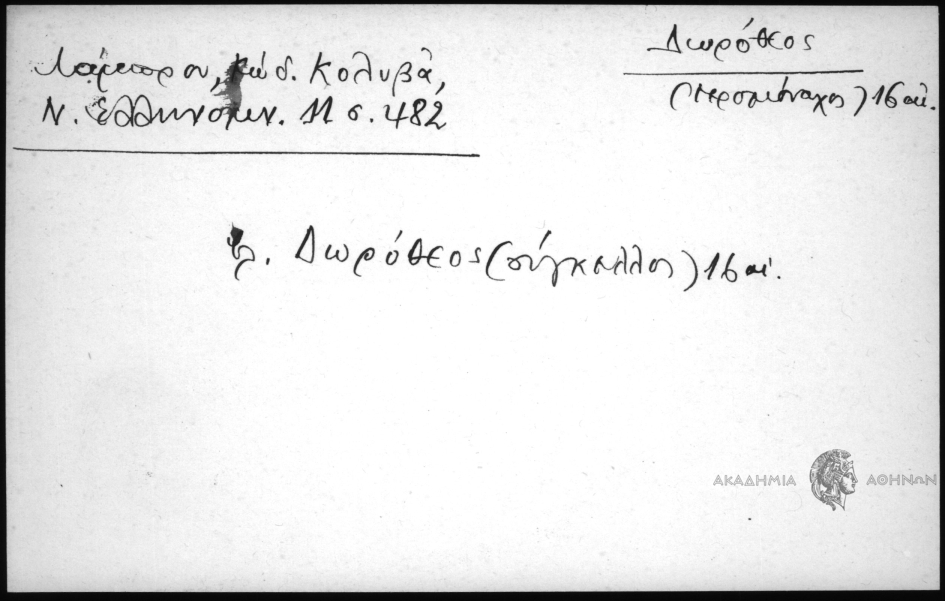 Λάμπρου, κώδ. Κολυβᾶ,
Ν. Ἑλληνομν. 11 σ. 482
Δωρόθεος
(ἱερομόναχος) 16 αἰ.
Δωρόθεος (σύγκελλος) 16 αἰ.
ΑΚΑΔΗΜΙΑ ΑΘΗΝΩΝ